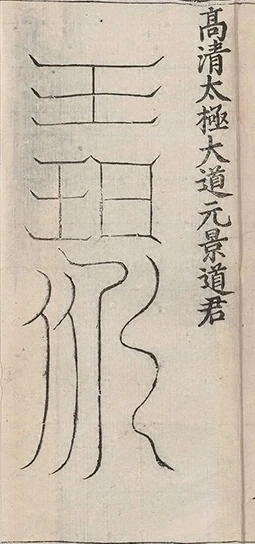 高清太極大道元景道君